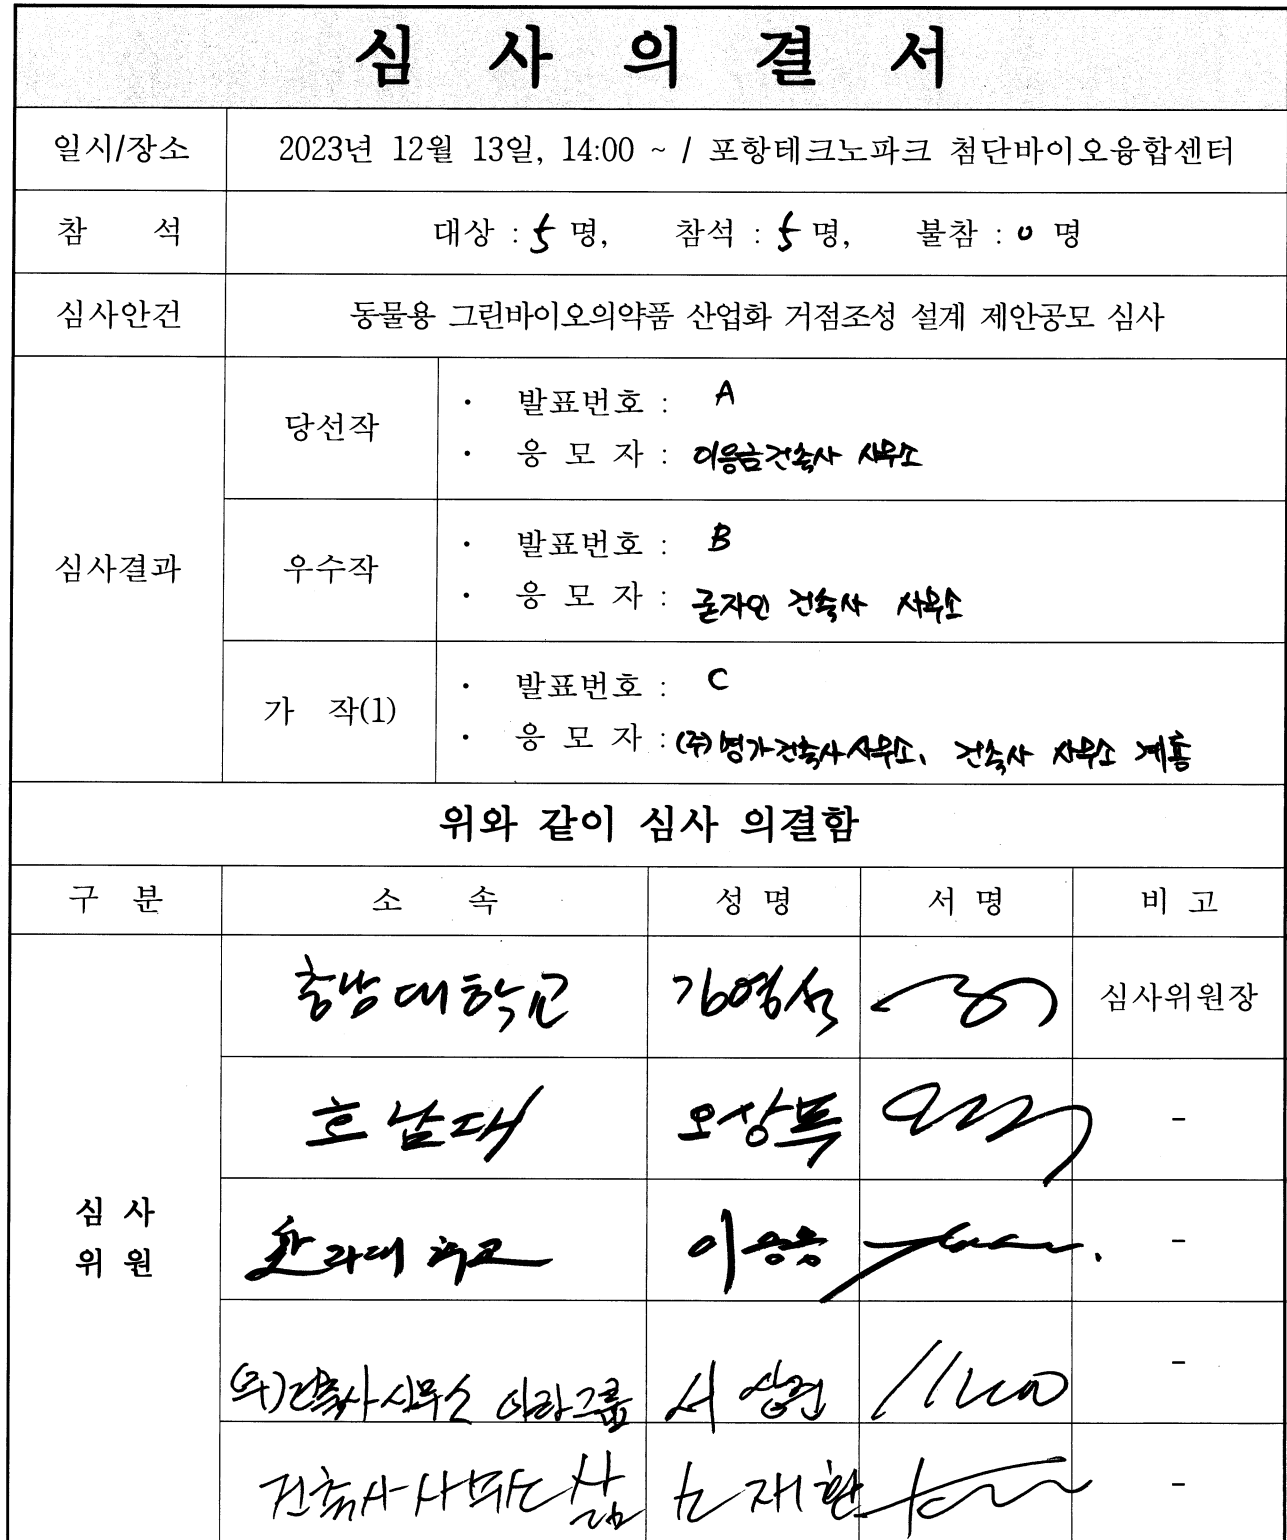 심 사 의 결 서
일시/장소 2023년 12월 13일, 14:00 ~ / 포항테크노파크 첨단바이오융합센터
참 석 대상 : 5 명, 참석 : 5 명, 불참 : 0 명
심사안건 동물용 그린바이오의약품 산업화 거점조성 설계 제안공모 심사
심사결과
당선작
· 발표번호 : A
· 응 모 자 : 이응금건축사 사무소
우수작
· 발표번호 : B
· 응 모 자 : 곤자인 건축사 사무소
가 작(1)
· 발표번호 : C
· 응 모 자 : (주)명가건축사사무소, 건축사 사무소 계룡
위와 같이 심사 의결함
구 분 소 속 성 명 서 명 비 고
심 사
위 원
충남대학교 김영석 심사위원장
호남대 오상목 -
대학교 이 -
(주)건축사사무소 아라그룹 서상현 -
건축사사무소 삶 재환 -